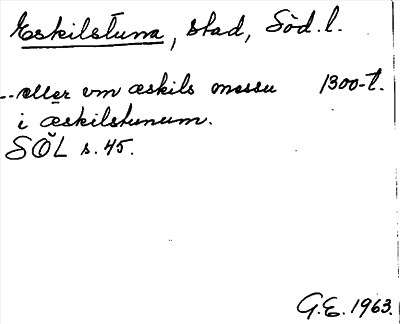 Eskilstuna, stad, Söd. l.
... eller vm æskils messu 1300-t.
i æskilstunum.
SÖL s. 45.
G.E. 1963.